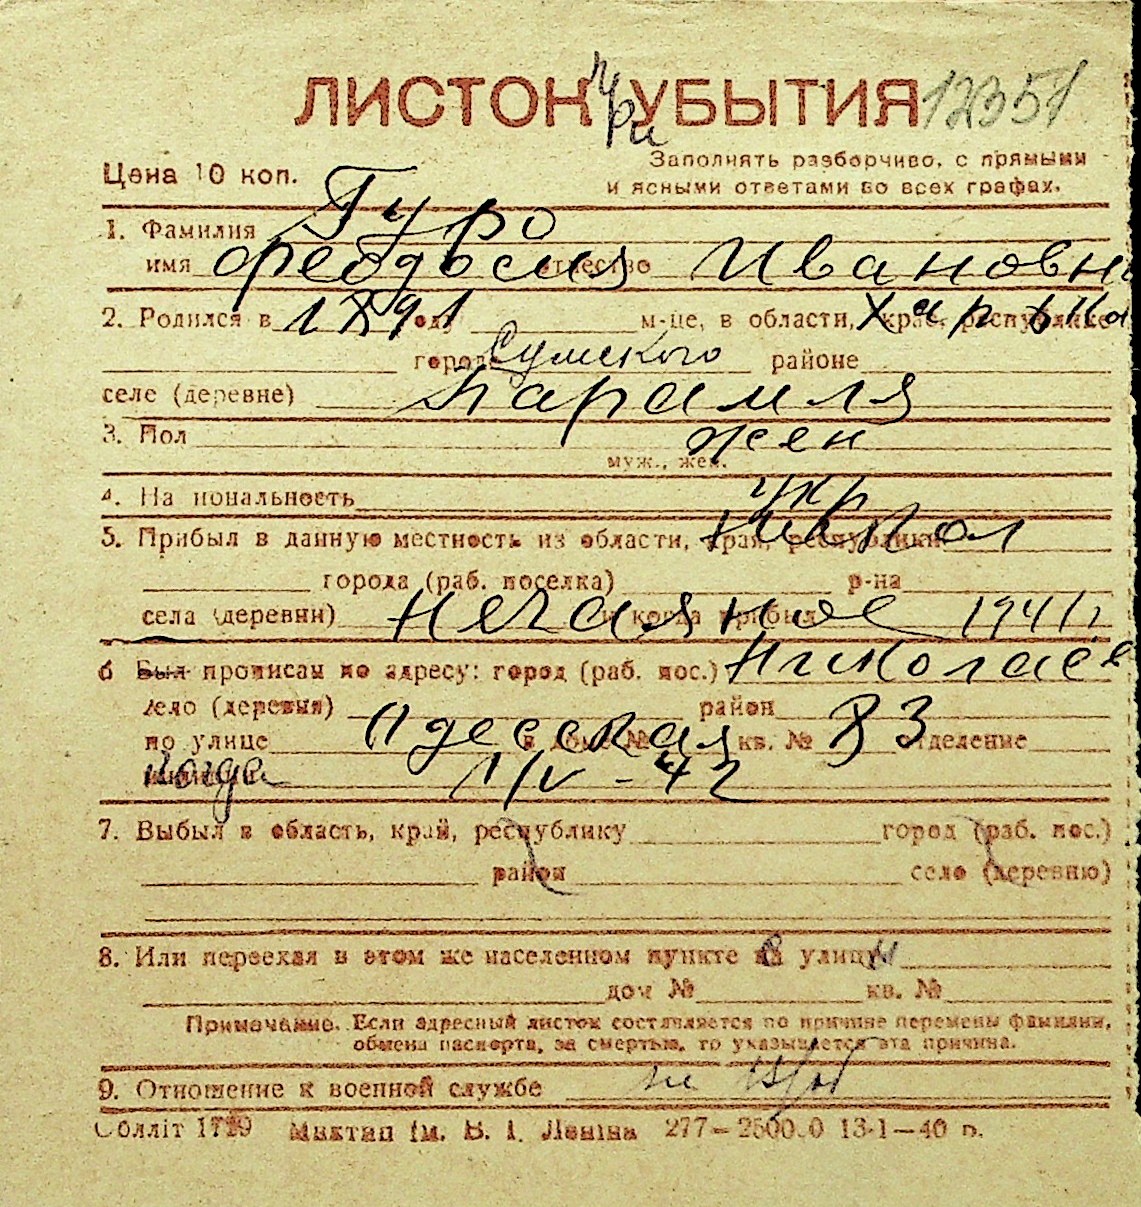 ЛИСТОК УБЫТИЯ 12351
при
Цена 10 коп.
Заполнять разборчиво, с прямыми
и ясными ответами во всех графах.
1. Фамилия Гуро
имя Феодосия отчество Ивановн
2. Родился в 1891 году м-це, в области, крае, республике Харька
города Сумского районе
селе (деревне)
3. Пол жен
муж., жен.
4. Национальность укр
5. Прибыл в данную местность из области, края, республики
города (раб. поселка) р-на
села (деревни) Нечаяное и когда прибыл 1941 г
6 Был прописан по адресу: город (раб. пос.) Николаев
село (деревня) район
по улице Одесская в доме № кв. № 83 отделение
когда 1/IV-42
7. Выбыл в область, край, республику город (раб. пос.)
район село (деревню)
8. Или переехал в этом же населенном пункте на улицу
дом № кв. №
Примечание. Если адресный листок составляется по причине перемены фамилии,
обмена паспорта, за смертью, то указывается эта причина.
9. Отношение к военной службе
Обллiт 1729 Миктип iм. В. I. Ленiна 277—25000 13-1—40 р.